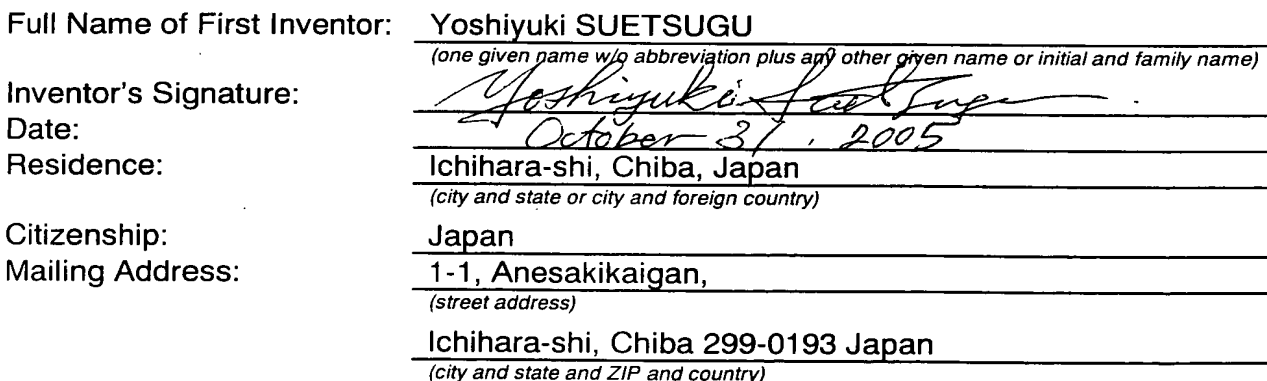 Full Name of First Inventor: Yoshiyuki SUETSUGU
(one given name w/o abbreviation plus any other given name or initial and family name)
Inventor's Signature: Yoshiyuki Suetsugu
Date: October 31, 2005
Residence: Ichihara-shi, Chiba, Japan
(city and state or city and foreign country)
Citizenship: Japan
Mailing Address: 1-1, Anesakikaigan,
(street address)
Ichihara-shi, Chiba 299-0193 Japan
(city and state and ZIP and country)